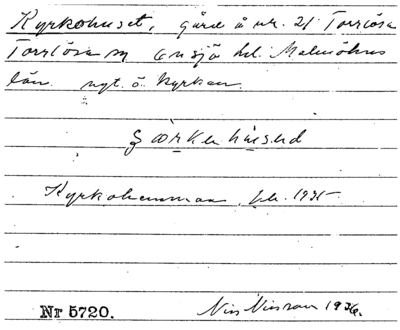 Kyrkohuset, gård å nr. 21 Torrlösa
Torrlösa sn Onsjö hd. Malmöhus
län. nyt. ö. kyrkan.
Kyrkohemman 1935
Nr 5720. Nils Nilsson 1936.